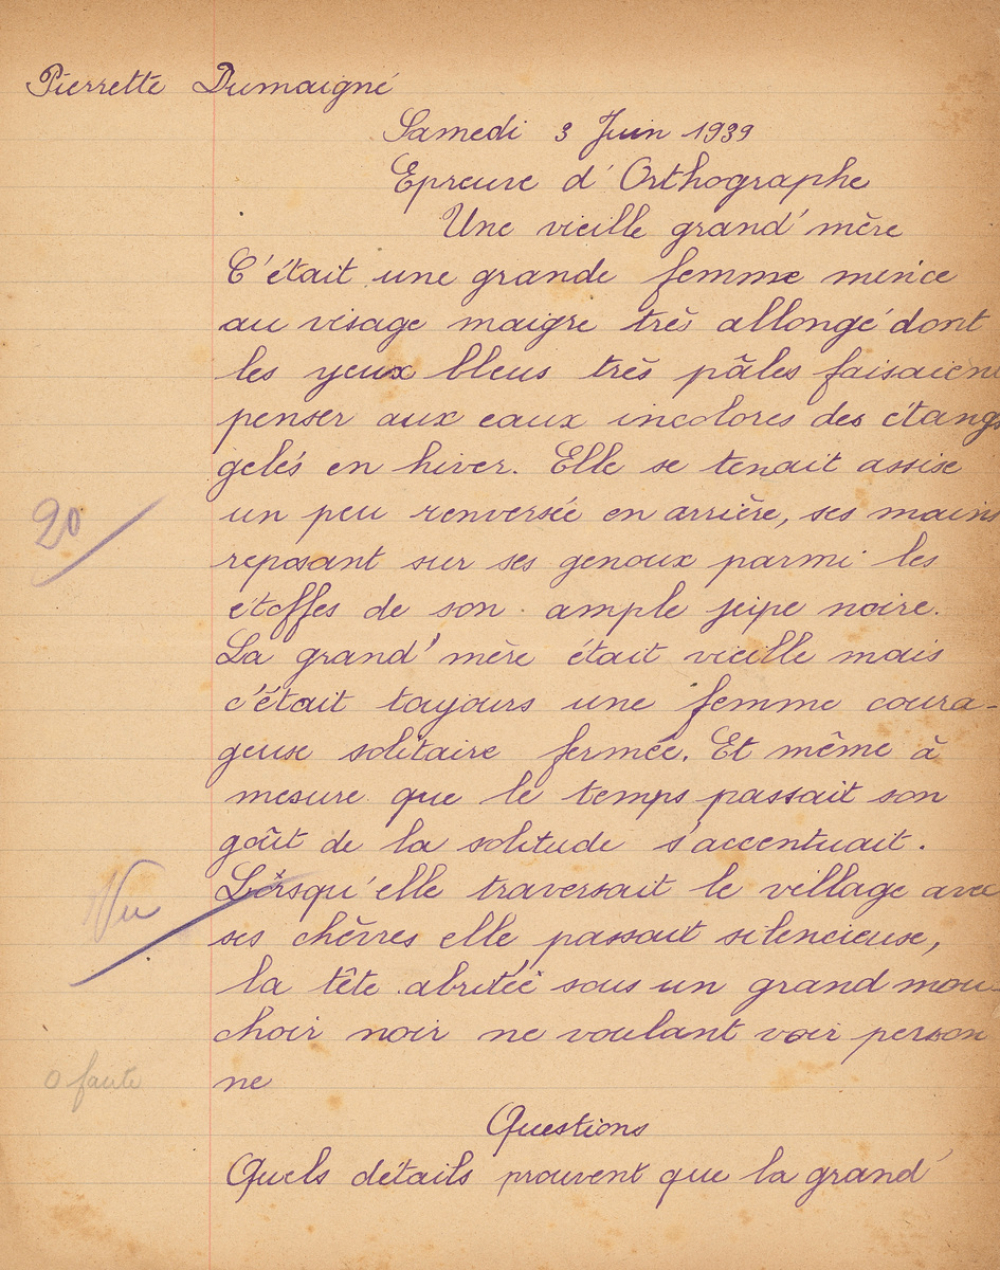 Pierrette Dumaigné
Samedi 3 Juin 1939
Epreuve d'Orthographe
Une vieille grand'mère
C'était une grande femme mince
au visage maigre très allongé dont
les yeux bleus très pâles faisaient
penser aux eaux incolores des étangs
gelés en hiver. Elle se tenait assise
un peu renversée en arrière, ses mains
20
reposant sur ses genoux parmi les
étoffes de son ample jupe noire.
La grand'mère était vieille mais
c'était toujours une femme coura-
geuse solitaire fermée. Et même à
mesure que le temps passait son
goût de la solitude s'accentuait.
Lorsqu'elle traversait le village avec
Vu
ses chèvres elle passait silencieuse,
la tête abritée sous un grand mou-
choir noir ne voulant voir person
0 faute
ne
Questions
Quels détails prouvent que la grand'